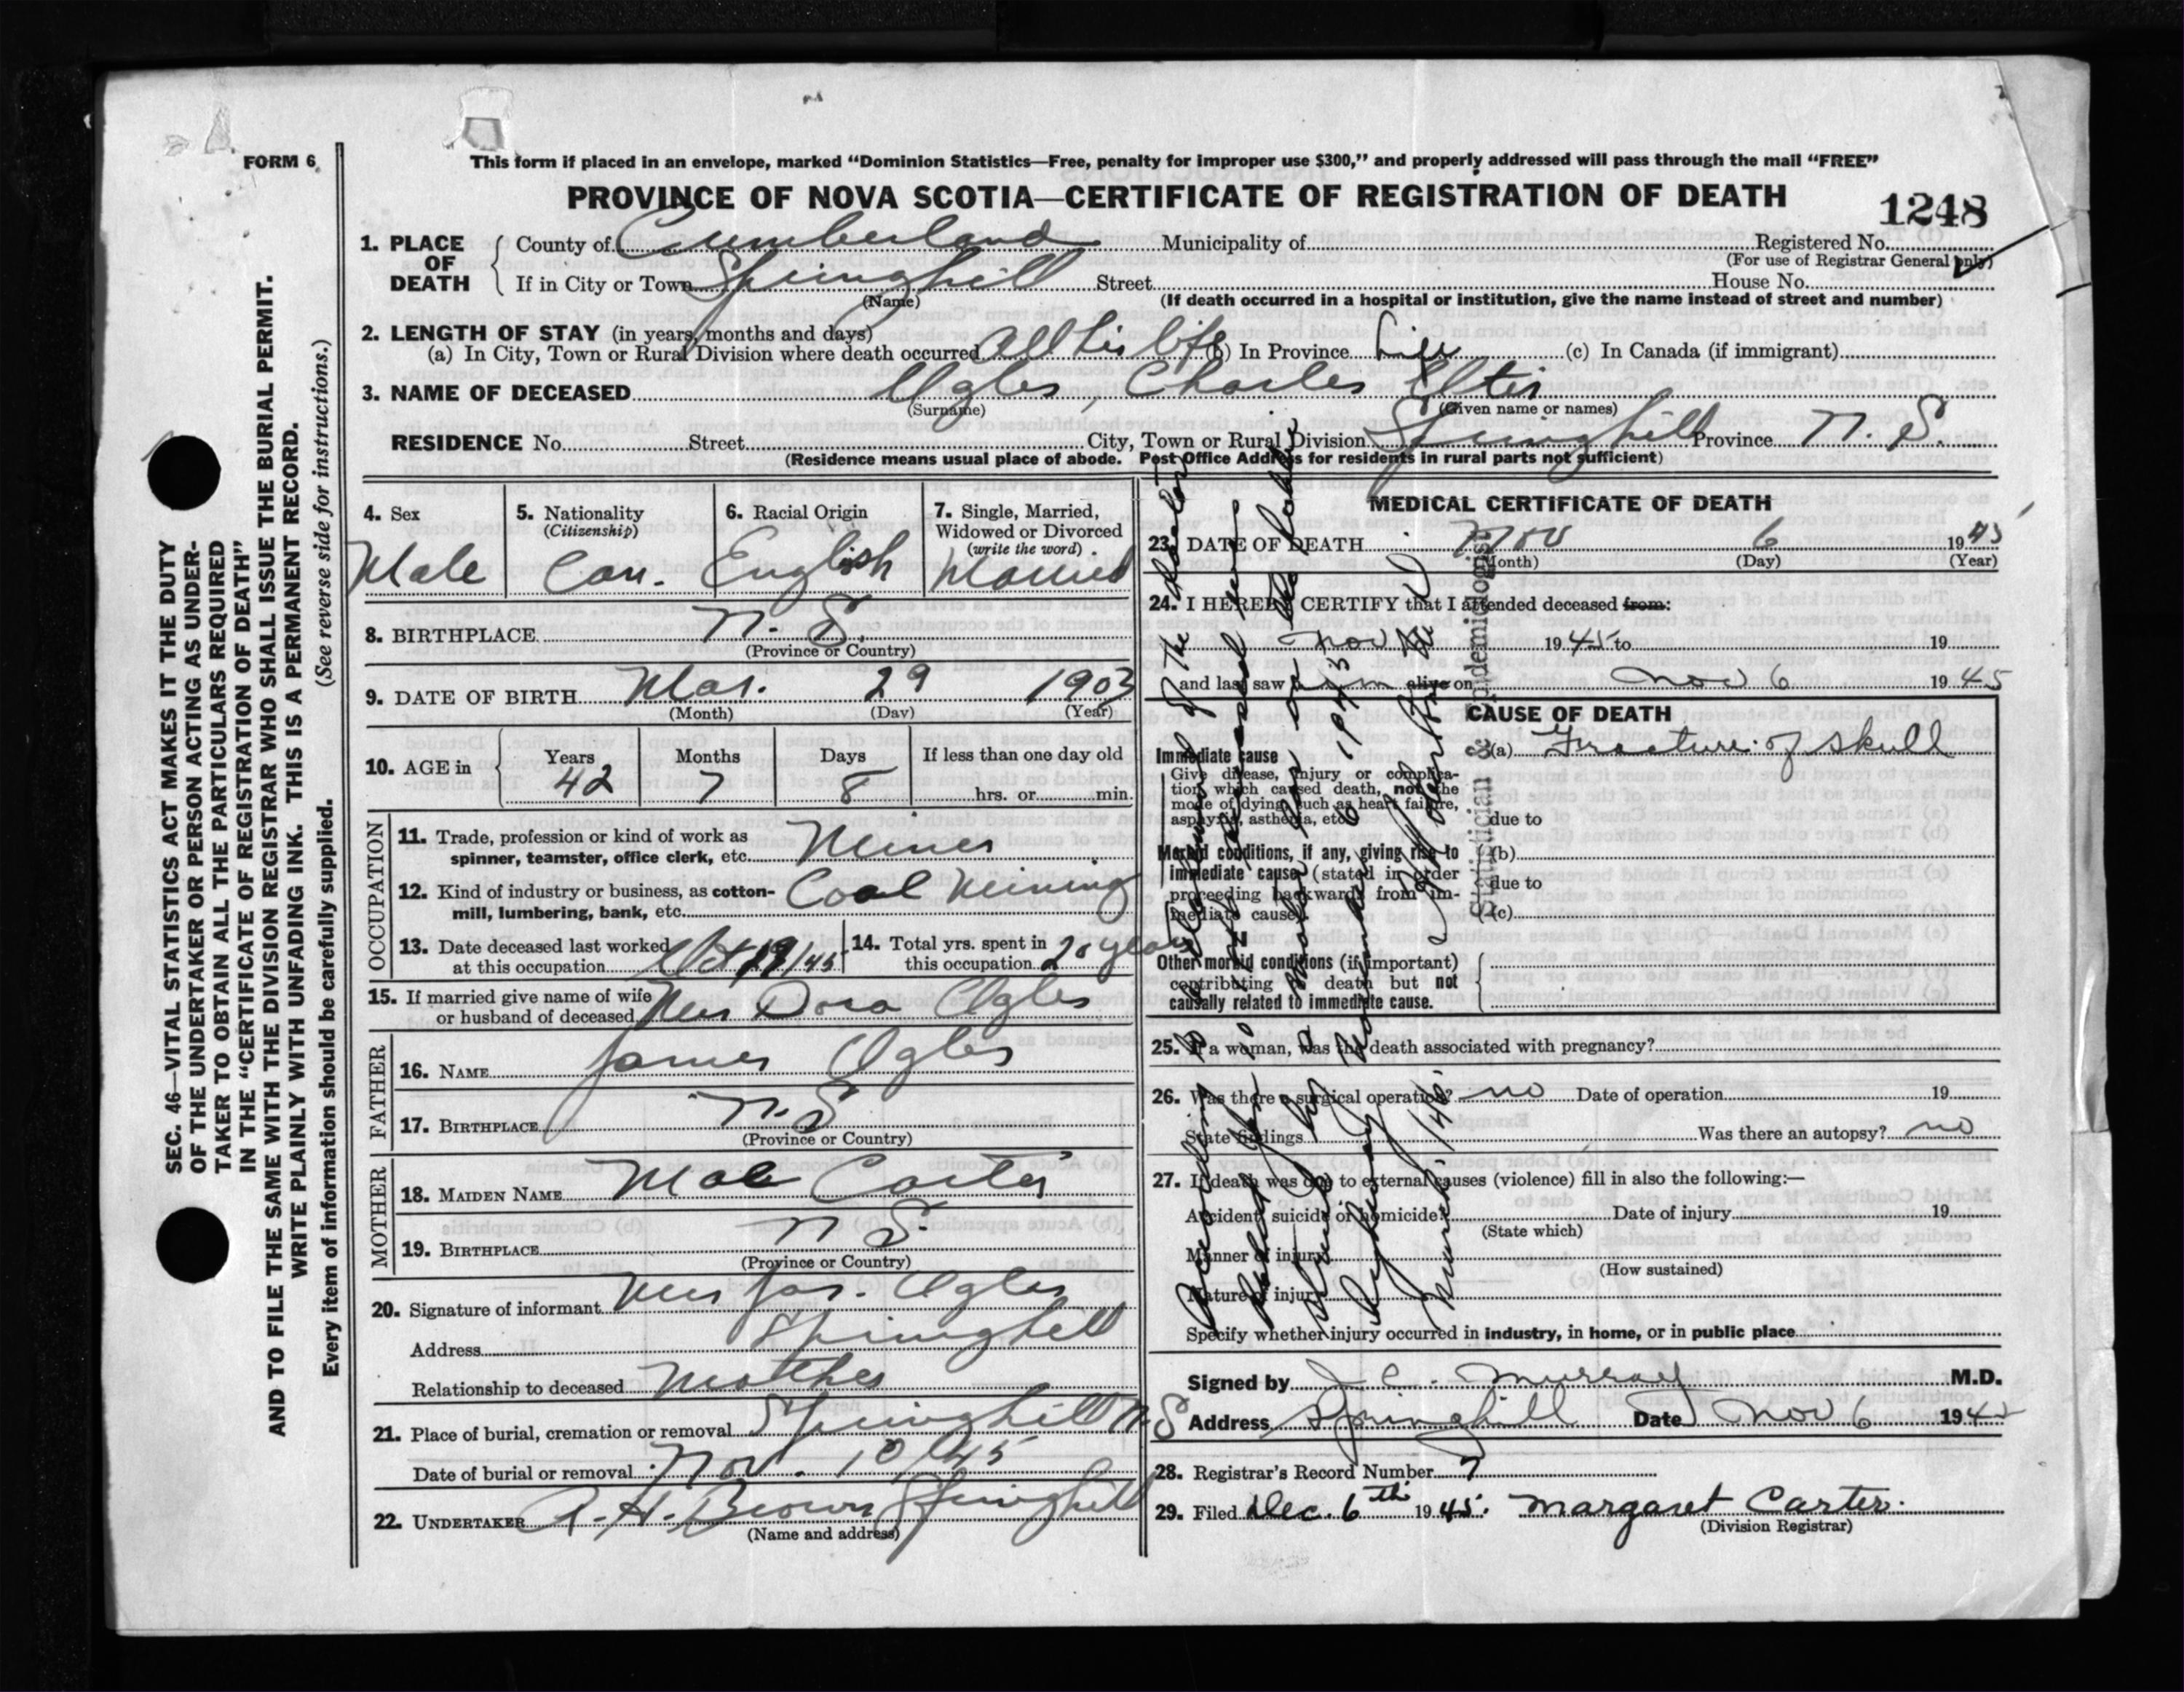 FORM 6
This form if placed in an envelope, marked "Dominion Statistics—Free, penalty for improper use $300," and properly addressed will pass through the mail "FREE"
PROVINCE OF NOVA SCOTIA—CERTIFICATE OF REGISTRATION OF DEATH
1248
SEC. 46—VITAL STATISTICS ACT MAKES IT THE DUTY
OF THE UNDERTAKER OR PERSON ACTING AS UNDER-
TAKER TO OBTAIN ALL THE PARTICULARS REQUIRED
IN THE "CERTIFICATE OF REGISTRATION OF DEATH"
AND TO FILE THE SAME WITH THE DIVISION REGISTRAR WHO SHALL ISSUE THE BURIAL PERMIT.
WRITE PLAINLY WITH UNFADING INK. THIS IS A PERMANENT RECORD.
Every item of information should be carefully supplied. (See reverse side for instructions.)
1. PLACE OF DEATH
County of Cumberland Municipality of Registered No.
(For use of Registrar General only)
If in City or Town Springhill Street House No.
(Name) (If death occurred in a hospital or institution, give the name instead of street and number)
2. LENGTH OF STAY (in years, months and days)
(a) In City, Town or Rural Division where death occurred All his life (b) In Province Life (c) In Canada (if immigrant)
3. NAME OF DECEASED Ogles, Charles
(Surname) (Given name or names)
RESIDENCE No. Street City, Town or Rural Division Springhill Province N. S.
(Residence means usual place of abode. Post Office Address for residents in rural parts not sufficient)
4. Sex 5. Nationality 6. Racial Origin 7. Single, Married,
(Citizenship) Widowed or Divorced
(write the word)
Male Can. English Married
8. BIRTHPLACE N. S.
(Province or Country)
9. DATE OF BIRTH Mar. 29 1903
(Month) (Day) (Year)
10. AGE in Years Months Days If less than one day old
42 7 8 hrs. or min.
OCCUPATION
11. Trade, profession or kind of work as
spinner, teamster, office clerk, etc. Miner
12. Kind of industry or business, as cotton-
mill, lumbering, bank, etc. Coal Mining
13. Date deceased last worked
at this occupation Oct 19/45
14. Total yrs. spent in
this occupation 20 years
15. If married give name of wife
or husband of deceased Mrs Dora Ogles
FATHER
16. NAME James Ogles
17. BIRTHPLACE N. S
(Province or Country)
MOTHER
18. MAIDEN NAME Carter
19. BIRTHPLACE N S.
(Province or Country)
20. Signature of informant Mrs Jas. Ogles
Address Springhill
Relationship to deceased Mother
21. Place of burial, cremation or removal Springhill N. S
Date of burial or removal Nov. 10/45
22. UNDERTAKER A. H. Brown Springhill
(Name and address)
MEDICAL CERTIFICATE OF DEATH
23. DATE OF DEATH Nov 6 1945
(Month) (Day) (Year)
24. I HEREBY CERTIFY that I attended deceased from:
Nov 1945 to 19
and last saw him alive on Nov 6 1945
CAUSE OF DEATH
I
Immediate cause (a) Fracture of skull
Give disease, injury or complica-
tion which caused death, not the
mode of dying such as heart failure,
asphyxia, asthenia, etc.
due to
Morbid conditions, if any, giving rise to (b)
immediate cause (stated in order
due to
proceeding backwards from im-
mediate cause). (c)
II
Other morbid conditions (if important)
contributing to death but not
causally related to immediate cause.
25. If a woman, was the death associated with pregnancy?
26. Was there a surgical operation? no Date of operation 19
State findings Was there an autopsy? no
27. If death was due to external causes (violence) fill in also the following:—
Accident, suicide or homicide? Date of injury 19
(State which)
Manner of injury
(How sustained)
Nature of injury
Specify whether injury occurred in industry, in home, or in public place
Signed by J. C. Murray M.D.
Address Springhill Date Nov 6 1945
28. Registrar's Record Number 7
29. Filed Dec. 6th 1945. Margaret Carter.
(Division Registrar)
Statistician & Epidemiologist